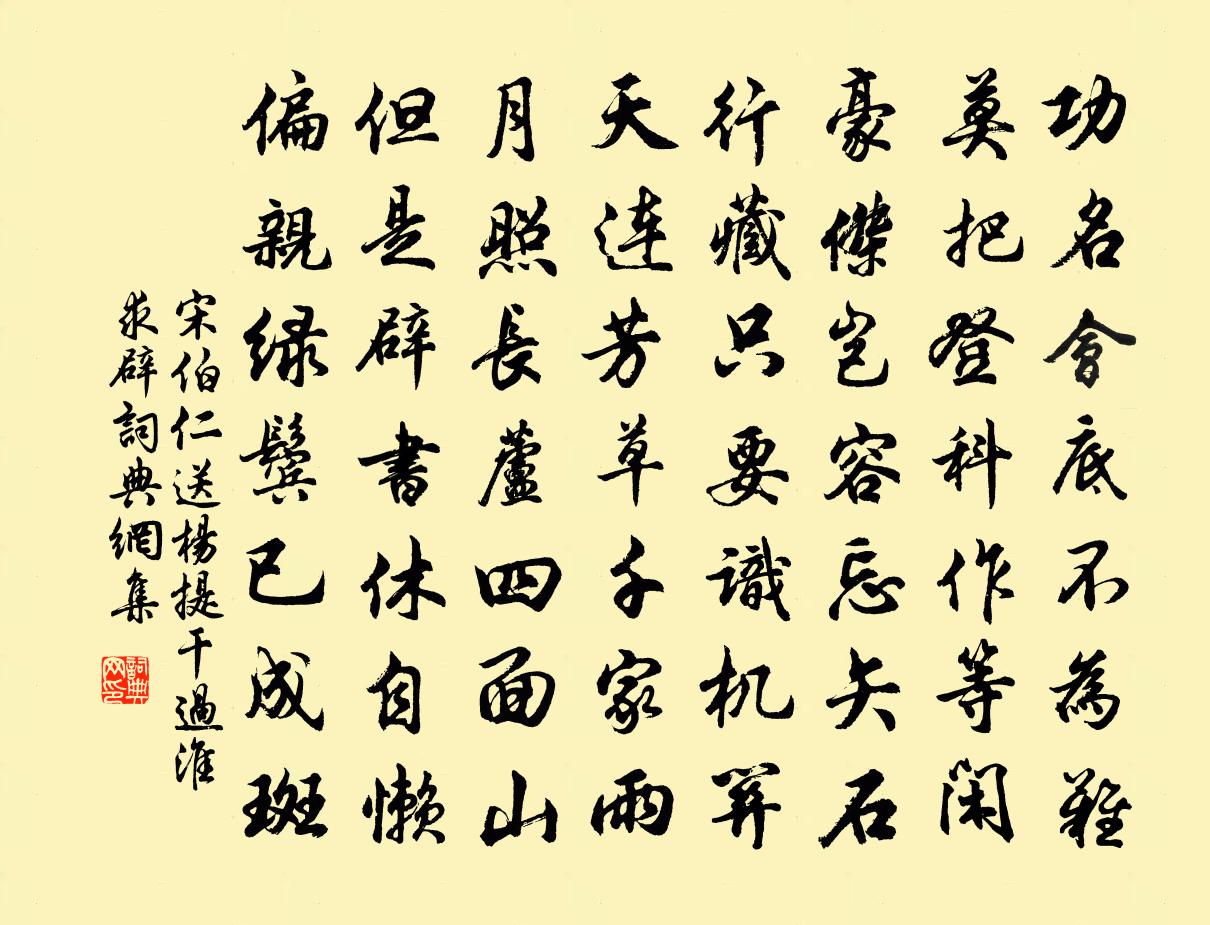 功名會底不為難
莫把登科作等閑
豪傑豈容忘矢石
行藏只要識机笄
天連芳草千家雨
月照長蘆四面山
但是辟書休自懶
偏親绿鬓已成斑
宋伯仁送楊提干過淮
求辟詞典網集
詞典网印